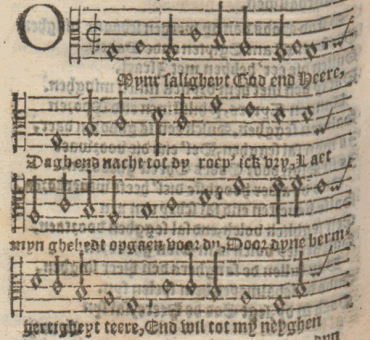 O Mijns saligheyt God end Heere,
Dagh end nacht tot dy roep' ick vry, Laet
myn ghebedt opgaen voor dy, Door dyne berm-
hertigheyt teere, End wil tot my neyghen
dyn